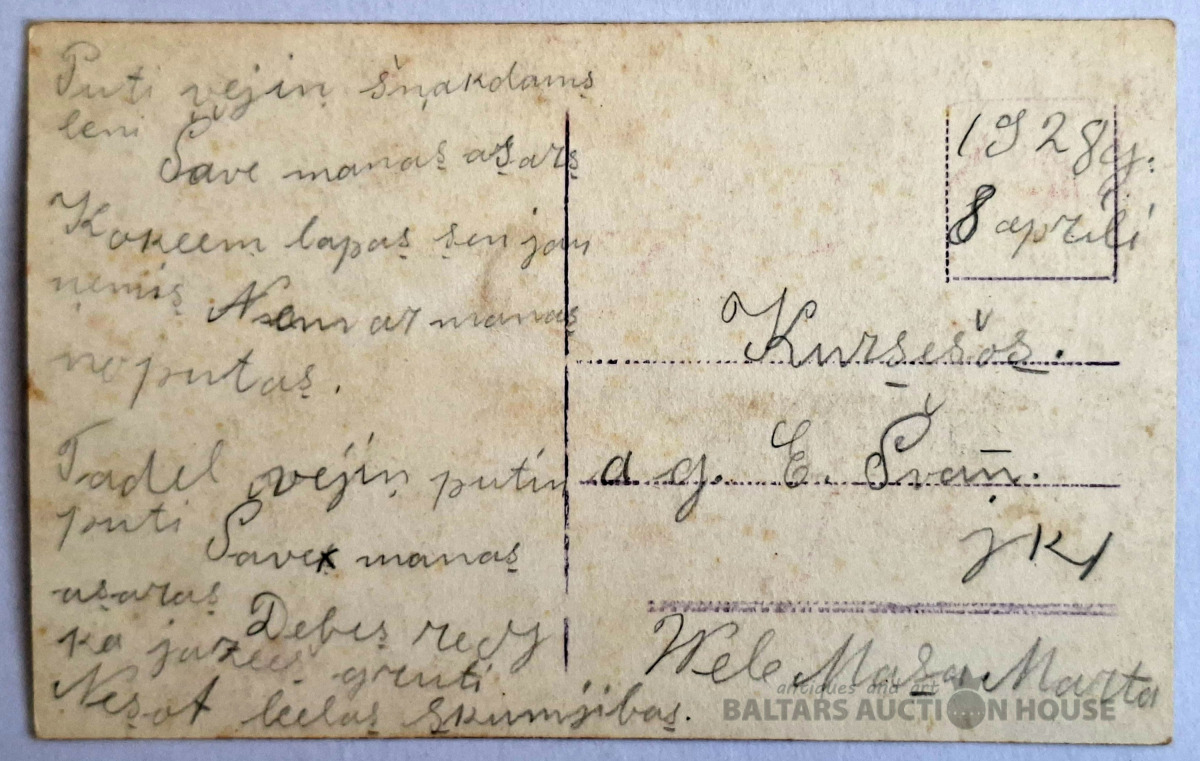 Puti vejiņ šņakdams
leni
Šave manas asars
Kokeem lapas sen jau
ņemis
Nem ar manas
noputas.
Tadel vejiņ putin
puti
Šave manas
asaras
Debes redz
ka jazees gruti
Nesot leelas skumjibas.
1928g.
8 aprili
Kursešos.
a g. E. Švān.
jk
Wele Masa Marta
antiques and art
BALTARS AUCTION HOUSE